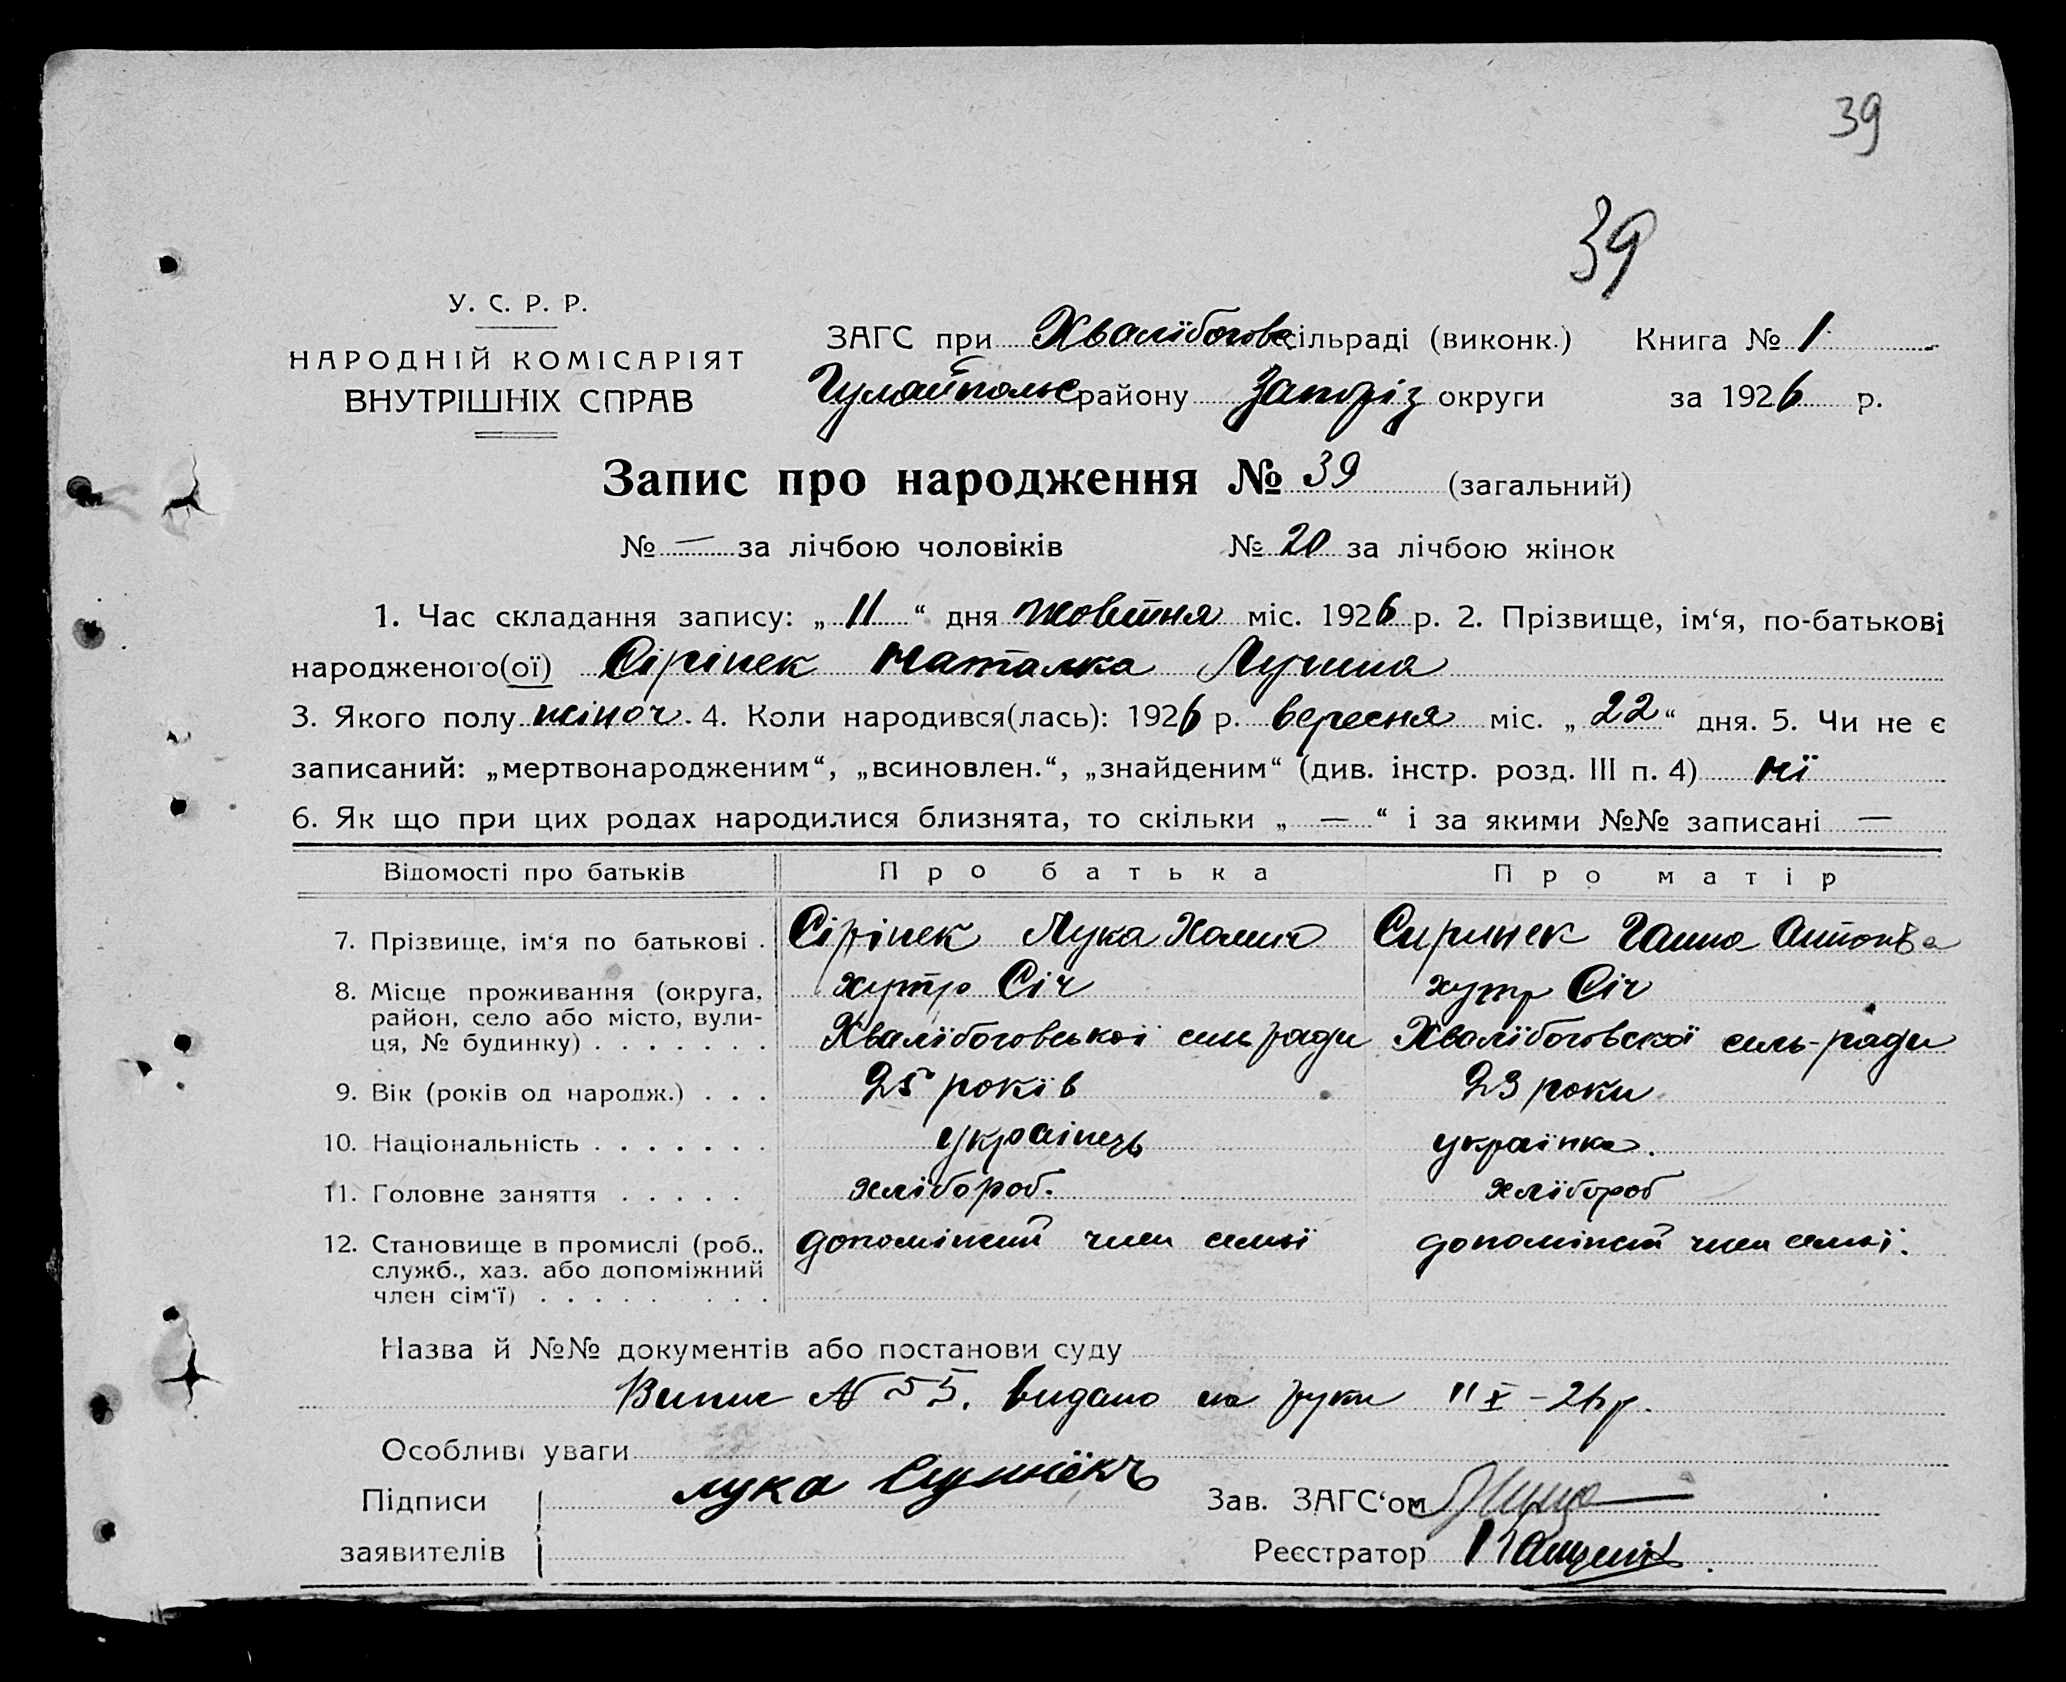 39
39
У. С. Р. Р.
НАРОДНІЙ КОМІСАРІЯТ
ВНУТРІШНІХ СПРАВ
ЗАГС при Хвалїбогов сільраді (виконк.) Книга № 1
Гуляйпольс району Запоріз округи за 1926 р.
Запис про народження № 39 (загальний)
№ — за лічбою чоловіків № 20 за лічбою жінок
1. Час складання запису: „ 11 “ дня жовтня міс. 1926 р. 2. Прізвище, ім‘я, по-батькові
народженого(ої) Сірінек Наталка Лукина
3. Якого полу жіноч. 4. Коли народився(лась): 1926 р. вересня міс. „ 22 “ дня. 5. Чи не є
записаний: „мертвонародженим“, „всиновлен.“, „знайденим“ (див. інстр. розд. III п. 4) нї
6. Як що при цих родах народилися близнята, то скільки „ — “ і за якими №№ записані —
Відомості про батьків Про батька Про матір
7. Прізвище, ім‘я по батькові . Сірінек Лука Сиринек Ганна Антонівна
8. Місце проживання (округа, хутір Січ хутір Січ
район, село або місто, вули-
ця, № будинку) . . . . . . . Хвалїбоговської силь ради Хвалїбоговскої силь-ради
9. Вік (років од народж.) . . . 25 років 23 роки
10. Національність . . . . . . . українець українка.
11. Головне заняття . . . . . хлібороб. хлїбороб
12. Становище в промислі (роб., допоміжний член семьї допоміжний член семьї.
служб., хаз. або допоміжний
член сім‘ї) . . . . . . . .
Назва й №№ документів або постанови суду
Випис № 55. видано на руки 11 X – 26 р.
Особливі уваги
Підписи лука Зав. ЗАГС‘ом
заявителів Реєстратор